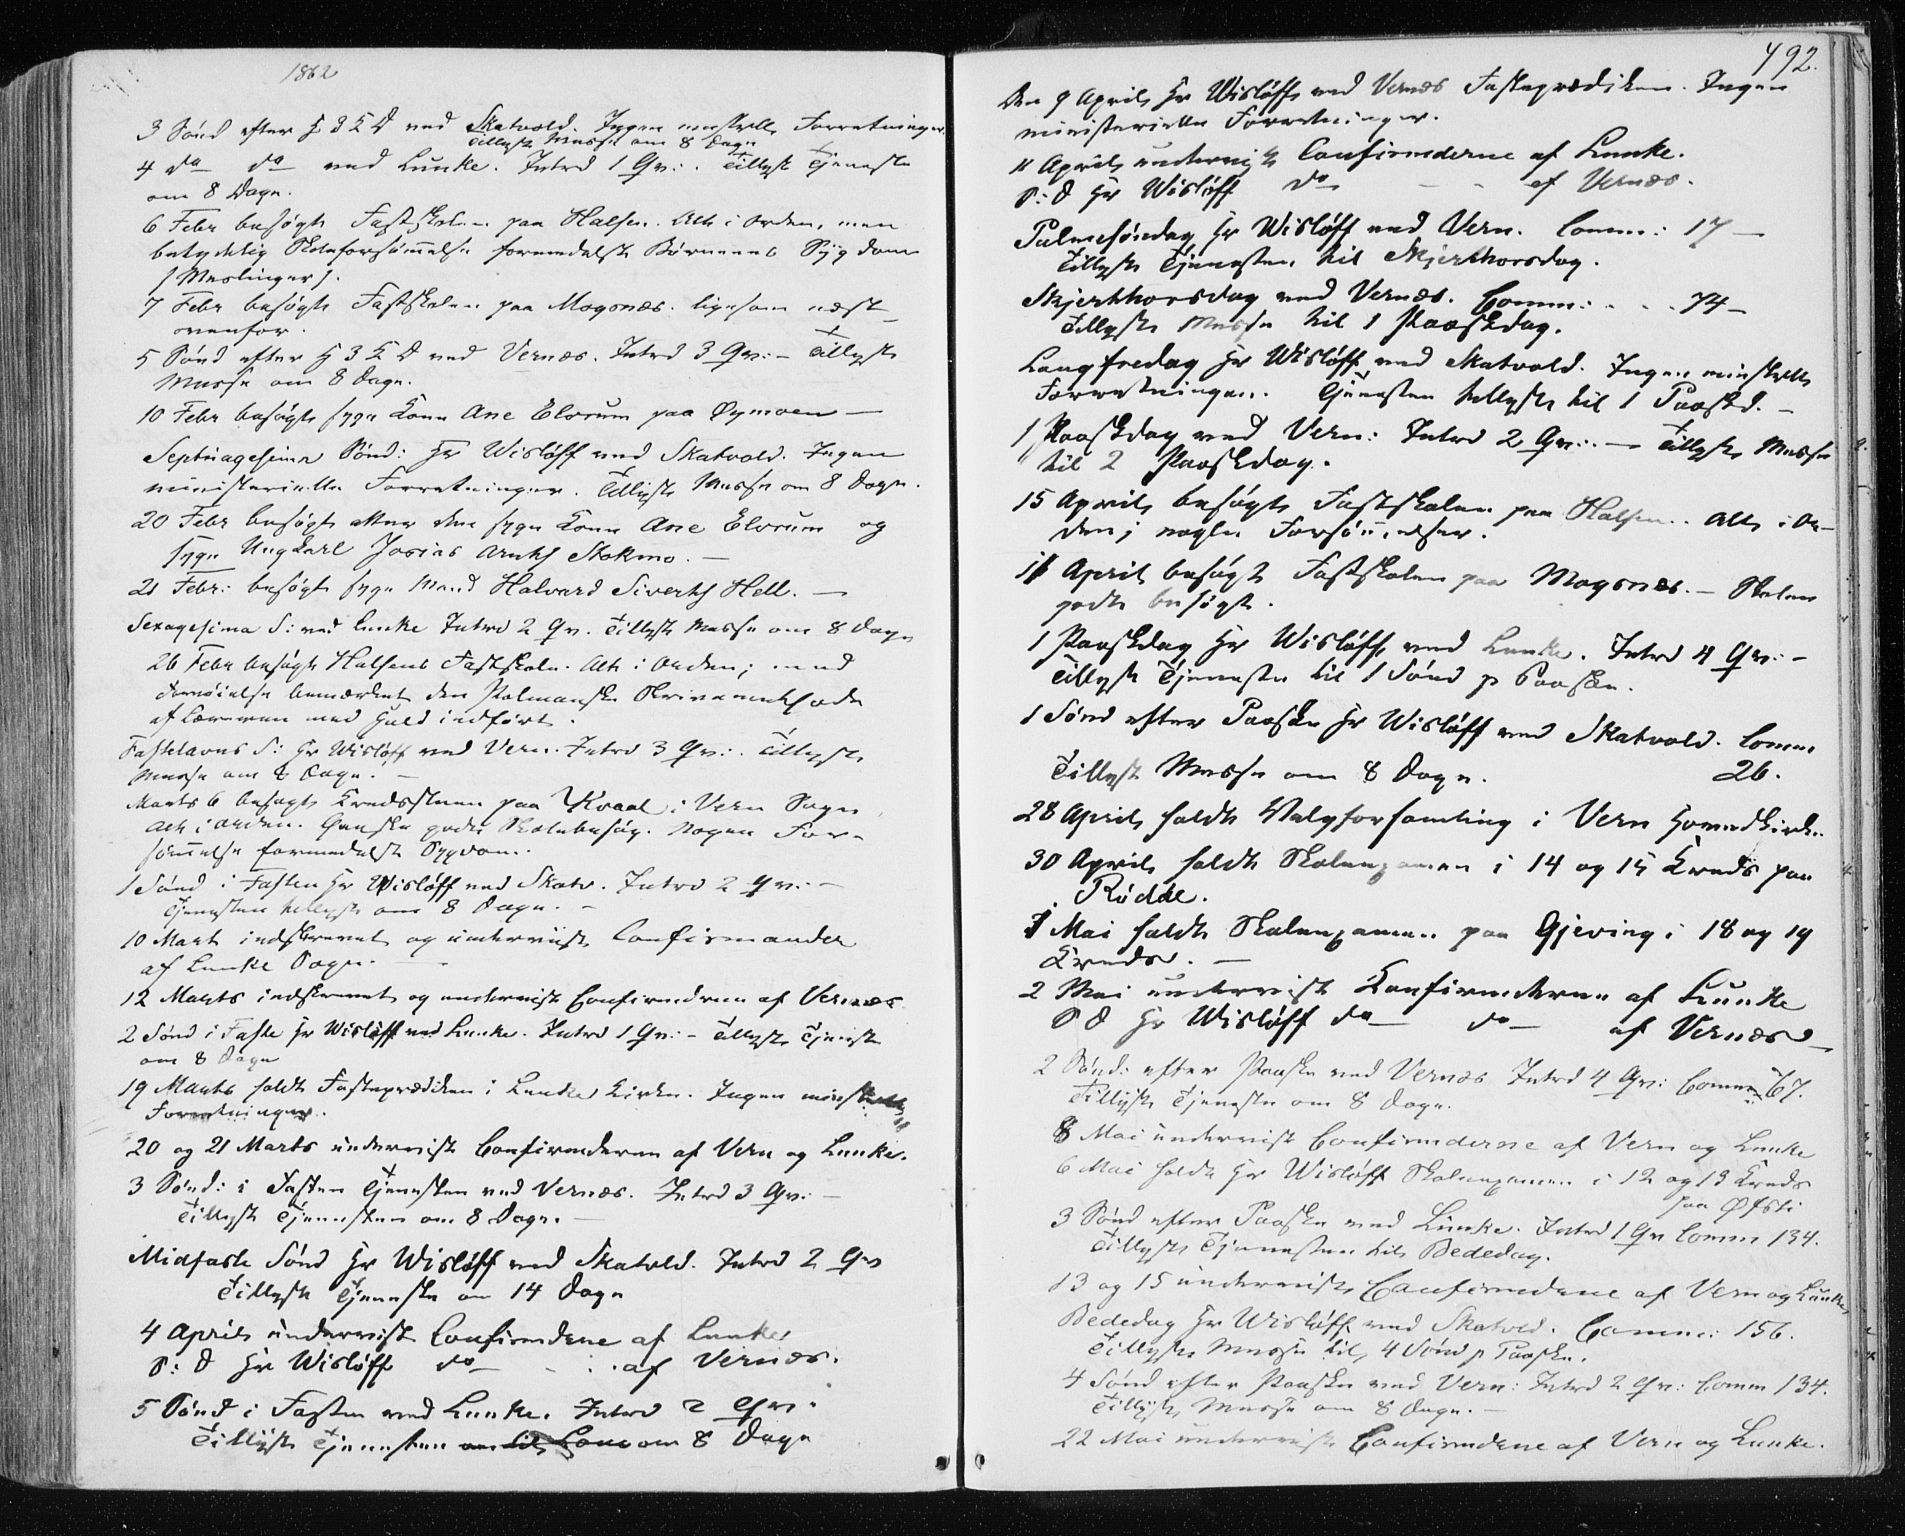 1862
3 Sønd efter H 3 K D ved Skatvold. Ingen minstrlle Forretninger.
Tillyst Messe om 8 Dage
4 do do ved Lunke. Intrd 1 Qv: . Tillyst Tjeneste
om 8 Dage.
6 Febr besøgt Fastskolen paa Halsen. Alt i Orden, men
betydelig Skoleforsømmelse formedelst Børnenes Sygdom
(Meslinger).
7 Febr besøgt Fastskolen paa Mogsnæs. ligesom næst
ovenfor.
5 Sønd efter H 3 K D ved Vernæs. Intrd 3 Qv: – Tillyst
Messe om 8 Dage.
10 Febr besøgt syge Kone Ane Elvrum paa Øymoen —
Septuagesima Sønd: Hr Wisløff ved Skatvold. Ingen
ministerielle Forretninger. Tillyst Messe om 8 Dage.
20 Febr besøgt atter den syge Kone Ane Elvrum og
syge Ungkarl Josias Arnts Stokmo. —
21 Febr: besøgt syge Mand Halvard Siverts Hell. —
Sexagesima S: ved Lunke Intrd 2 Qv. Tillyst Messe om 8 Dage
26 Febr besøgt Halsens Fastskole. Alt i Orden; med
Fornøielse bemærket den Skrivemethode
af Læreren med Held indført.
Fastelavns S: Hr Wisløff ved Vern. Intrd 3 Qv: . Tillyst
Messe om 8 Dage. —
Marts 6 besøgt Kredsstuen paa Kvaal i Vern Sogn
Alt i Orden. Ganske godt Skolebesøg. Nogen For-
sømmelse formedelst Sygdom.
1 Sønd i Fasten Hr Wisløff ved Skatv. Intrd 2 Qv. –
Tjenesten tillyst om 8 Dage. –
10 Mart indskrevet og underviist Confirmander
af Lunke Sogn. —
12 Marts indskrevet og underviist Confirmdrne af Vernæs
2 Sønd i Faste Hr Wisløff ved Lunke. Intrd 1 Qv: – Tillyst Tjeneste
om 8 Dage
19 Marts holdt Fasteprædiken i Lunke Kirke. Ingen minstrlle
Forretninger.
20 og 21 Marts underviist Confirmderne af Vern og Lunke.
3 Sønd: i Fasten Tjenesten ved Vernæs. Intrd 3 Qv: –
Tillyst Tjenesten om 8 Dage. —
Midfaste Sønd Hr Wisløff ved Skatvld. Intrd 2 Qv
Tillyst Tjeneste om 14 Dage
4 April underviist Confirmdrne af Lunke
S: D Hr Wisløff do — - . . af Vernæs.
5 Sønd i Fasten ved Lunke. Intrd 2 Qv.
Tillyst Tjenesten om 8 Dage
492.
Den 9 April Hr Wisløff ved Vernæs Fasteprædiken. Ingen
ministerielle Forretninger.
11 April underviist Confirmderne af Lunke.
S: D Hr Wisløff do - - af Vernæs.
Palmesøndag Hr Wisløff ved Vern. Comm: 17 —
Tillyst Tjenesten til Skjerthorsdag.
Skjerthorsdag ved Vernæs. Comm: . . . 74 –
Tillyst Messe til 1 Paaskdag.
Langfredag Hr Wisløff ved Skatvold. Ingen minstrlle
Forretninger. Tjenesten tillyst til 1 Paaskd. –
1 Paaskdag ved Vern: Intrd 2 Qv: . — Tillyst Messe
til 2 Paaskdag.
15 April besøgt Fastskolen paa Halsen. Alt i Or-
den; nogle Forsømmelser.
April besøgt Fastskolen paa Mogsnæs. – Skolen
godt besøgt.
1 Paaskdag Hr Wisløff ved Lunke. Intrd 4 Qv: –
Tillyst Tjeneste til 1 Sønd p Paaske.
1 Sønd efter Paaske Hr Wisløff ved Skatvold. Comm
Tillyst Messe om 8 Dage. 26.
28 April holdt Valgforsamling i Vern Hovedkirke.
30 April holdt Skoleexamen i 14 og 15 Kreds paa
Rødde.
1 Mai holdt Skoleexamen paa Gjeving i 18 og 19
Kreds. —
2 Mai underviist Confirmderne af Lunke
S D Hr Wisløff do — do — af Vernæs —
2 Sønd: efter Paaske ved Vernæs Intrd 4 Qv: Comm: 67.
Tillyst Tjeneste om 8 Dage.
8 Mai underviist Confirmderne af Vern og Lunke
6 Mai holdt Hr Wisløff Skoleexamen i 12 og 13 Kreds
paa Øfsti
3 Sønd efter Paaske ved Lunke. Intrd 1 Qv Comm 134.
Tillyst Tjenesten til Bededag.
13 og 15 underviist Confirmdene af Vern og Lunke
Bededag Hr Wisløff ved Skatvld. Comm: 156.
Tillyst Messe til 4 Sønd p Paaske.
4 Sønd efter Paaske ved Vern: Intrd 2 Qv: Comm 134.
Tillyst Messe om 8 Dage. —
22 Mai underviist Confirmdene af Vern og Lunke.